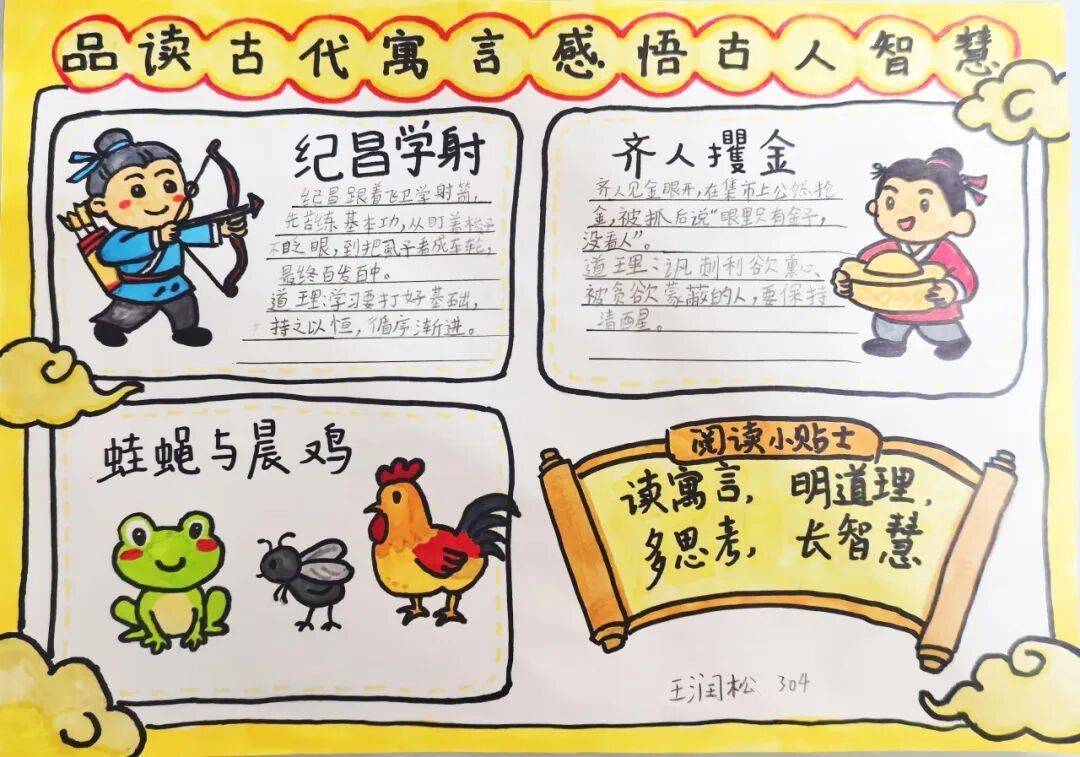 品读古代寓言感悟古人智慧
纪昌学射
纪昌跟着飞卫学射箭,
先苦练基本功,从盯着梭子
不眨眼,到把虱子看成车轮,
最终百发百中。
道理:学习要打好基础,
持之以恒,循序渐进。
齐人攫金
齐人见金眼开,在集市上公然抢
金,被抓后说“眼里只有金子,
没看人”。
道理:讽刺利欲熏心、
被贪欲蒙蔽的人,要保持
清醒。
蛙蝇与晨鸡
阅读小贴士
读寓言,明道理,
多思考,长智慧
王润松 304